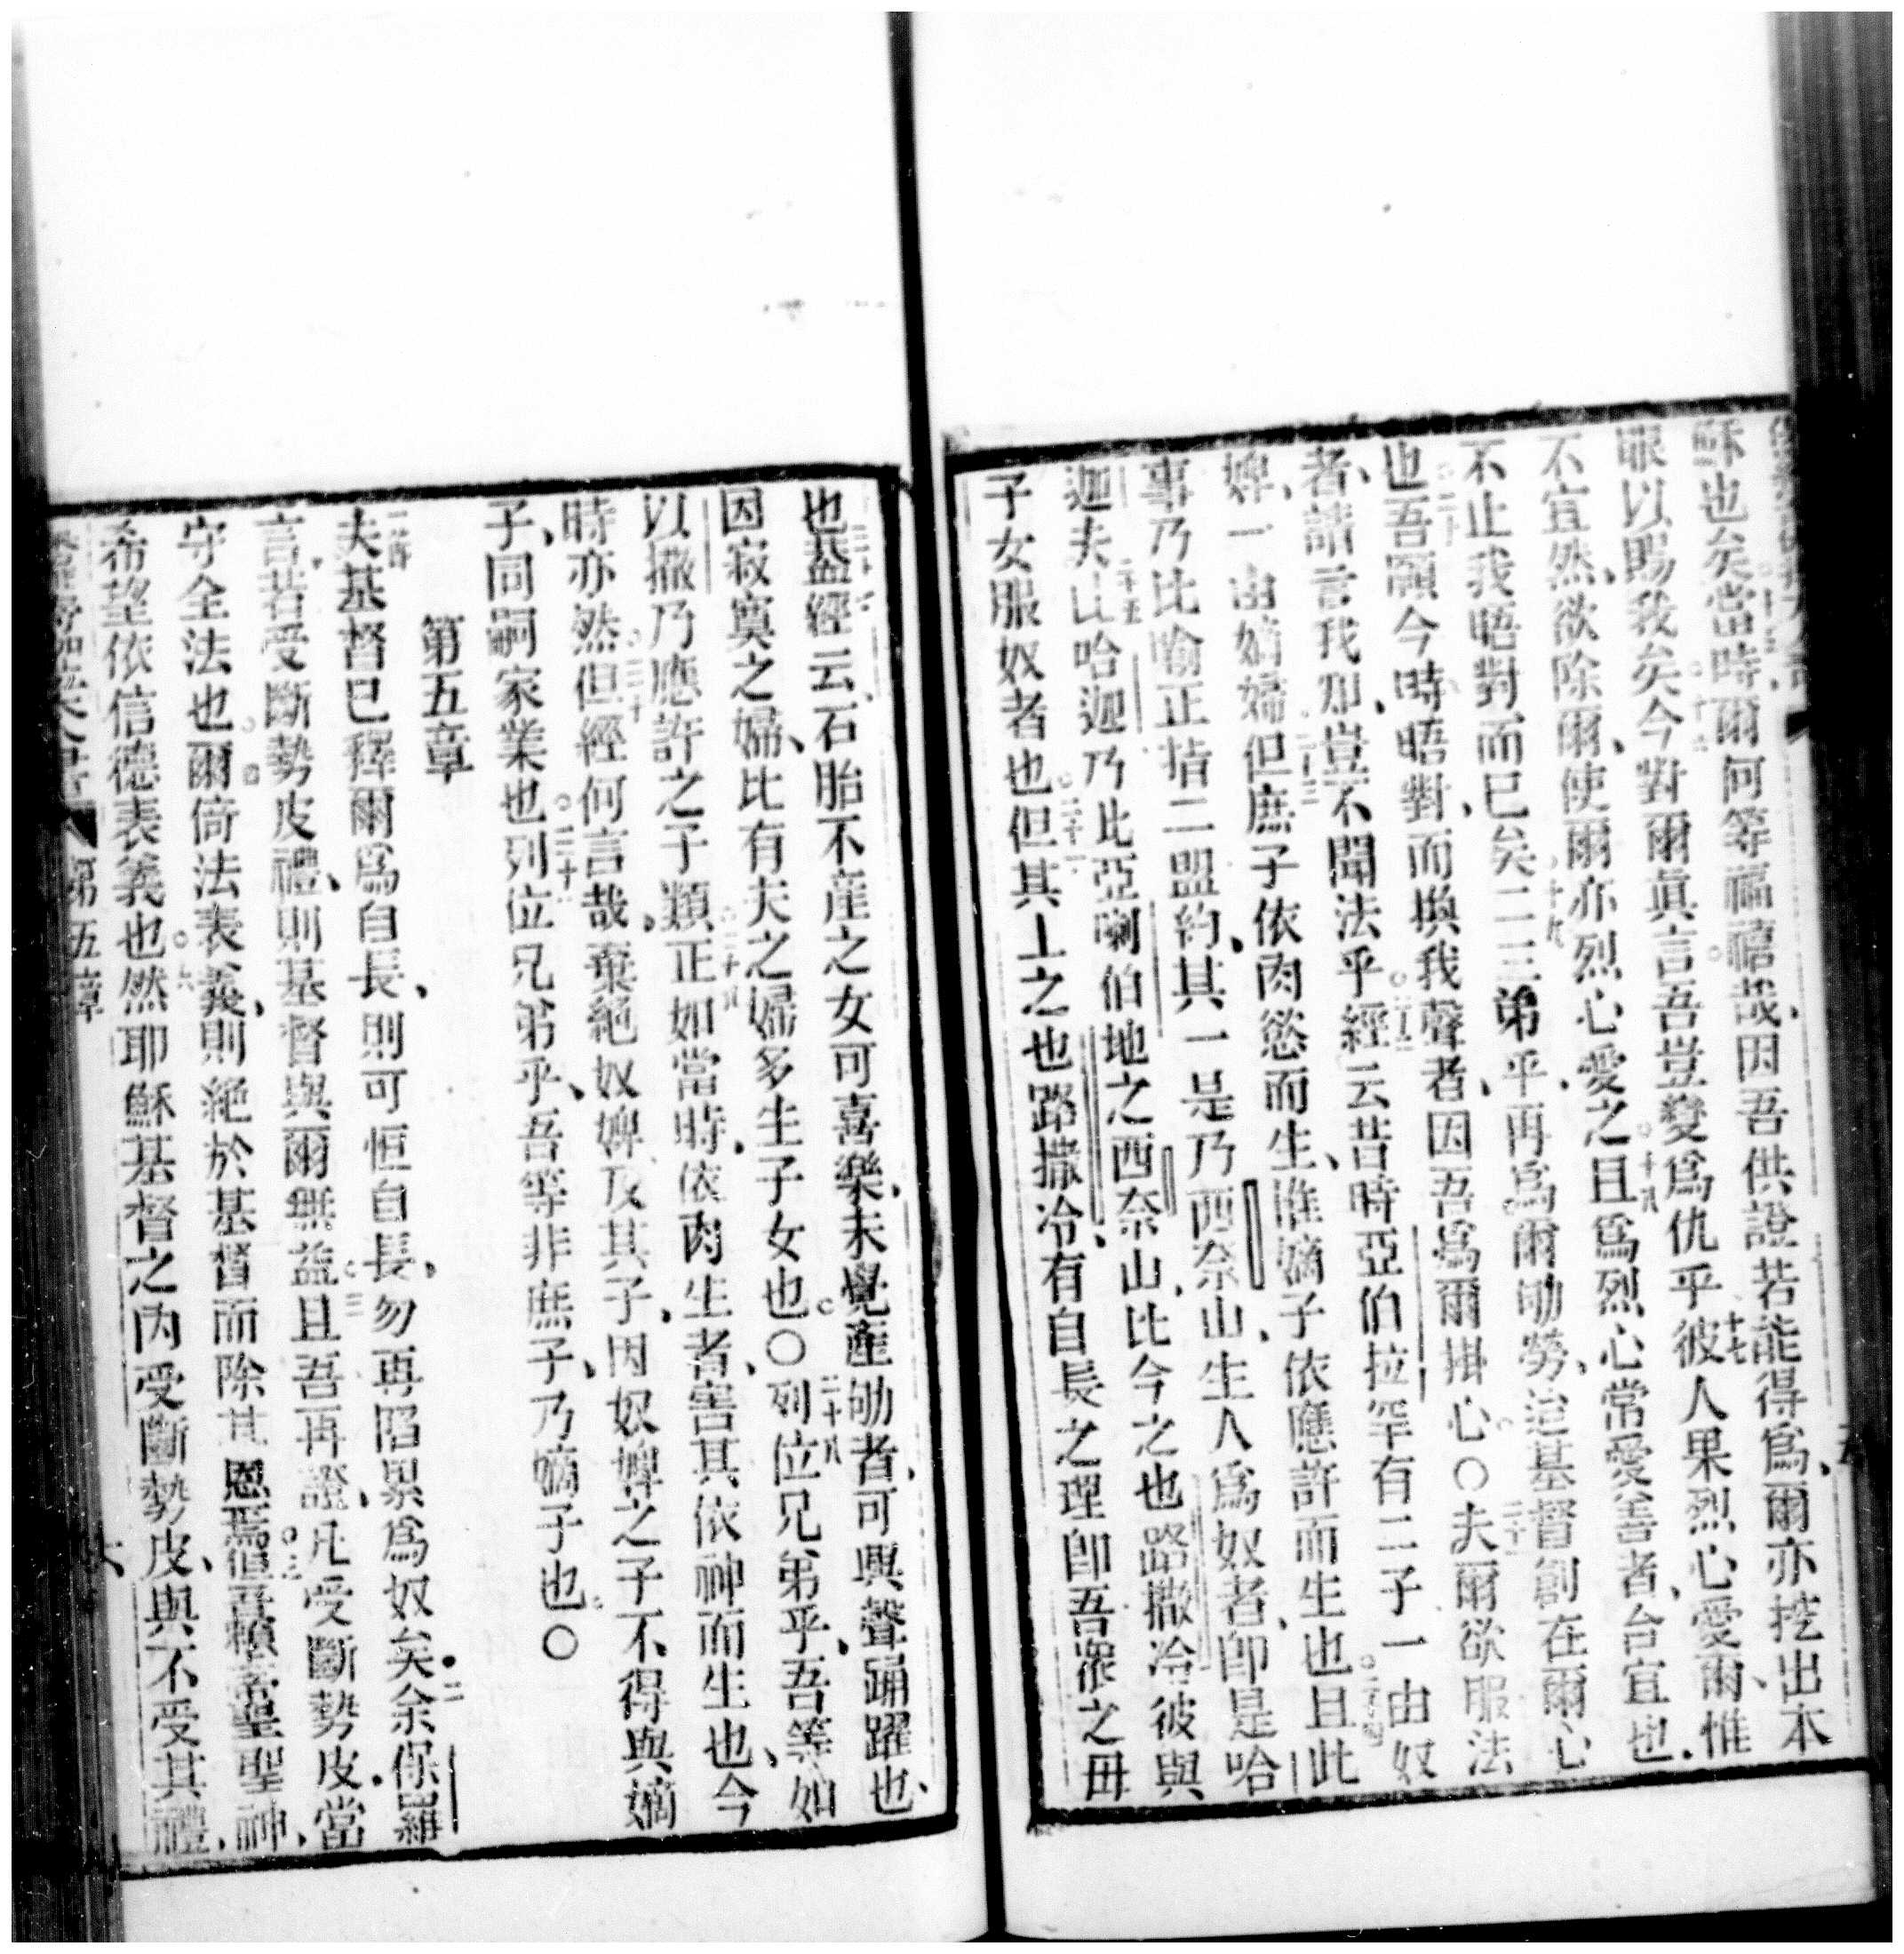 穌也矣當時爾何等福禧哉因吾供證若能得爲爾亦挖出本
眼以賜我矣今對爾眞言吾豈變爲仇乎彼人果烈心愛爾惟
不宜然欲除爾使爾亦烈心愛之且爲烈心常愛善者台宜也
不止我晤對而已矣二三弟乎再爲爾劬勞迨基督創在爾心
也吾願今時晤對而換我聲者因吾爲爾掛心○夫爾欲服法
者請言我知豈不聞法乎經云昔時亞伯拉罕有二子一由奴
婢一由嫡婦但庶子依肉慾而生惟嫡子依應許而生也且此
事乃比喻正指二盟約其一是乃西奈山生人爲奴者卽是哈
迦夫此哈迦乃此亞喇伯地之西奈山比今之也路撒冷彼與
子女服奴者也但其上之也路撒冷有自長之理卽吾衆之毋
也葢經云石胎不產之女可喜樂未覺產劬者可興聲踊躍也
因寂寞之婦比有夫之婦多生子女也○列位兄弟乎吾等如
以撒乃應許之子類正如當時依肉生者害其依神而生也今
時亦然但經何言哉棄絕奴婢及其子因奴婢之子不得與嫡
子同嗣家業也列位兄弟乎吾等非庶子乃嫡子也○
第五章
夫基督已釋爾爲自長則可恒自長勿再陷累爲奴矣余保羅
言若受斷勢皮禮則基督與爾無益且吾再證凡受斷勢皮當
守全法也爾倚法表義則絕於基督而除其恩焉但吾賴聖神
希望依信德表義也然耶穌基督之內受斷勢皮與不受其禮
第五章
六